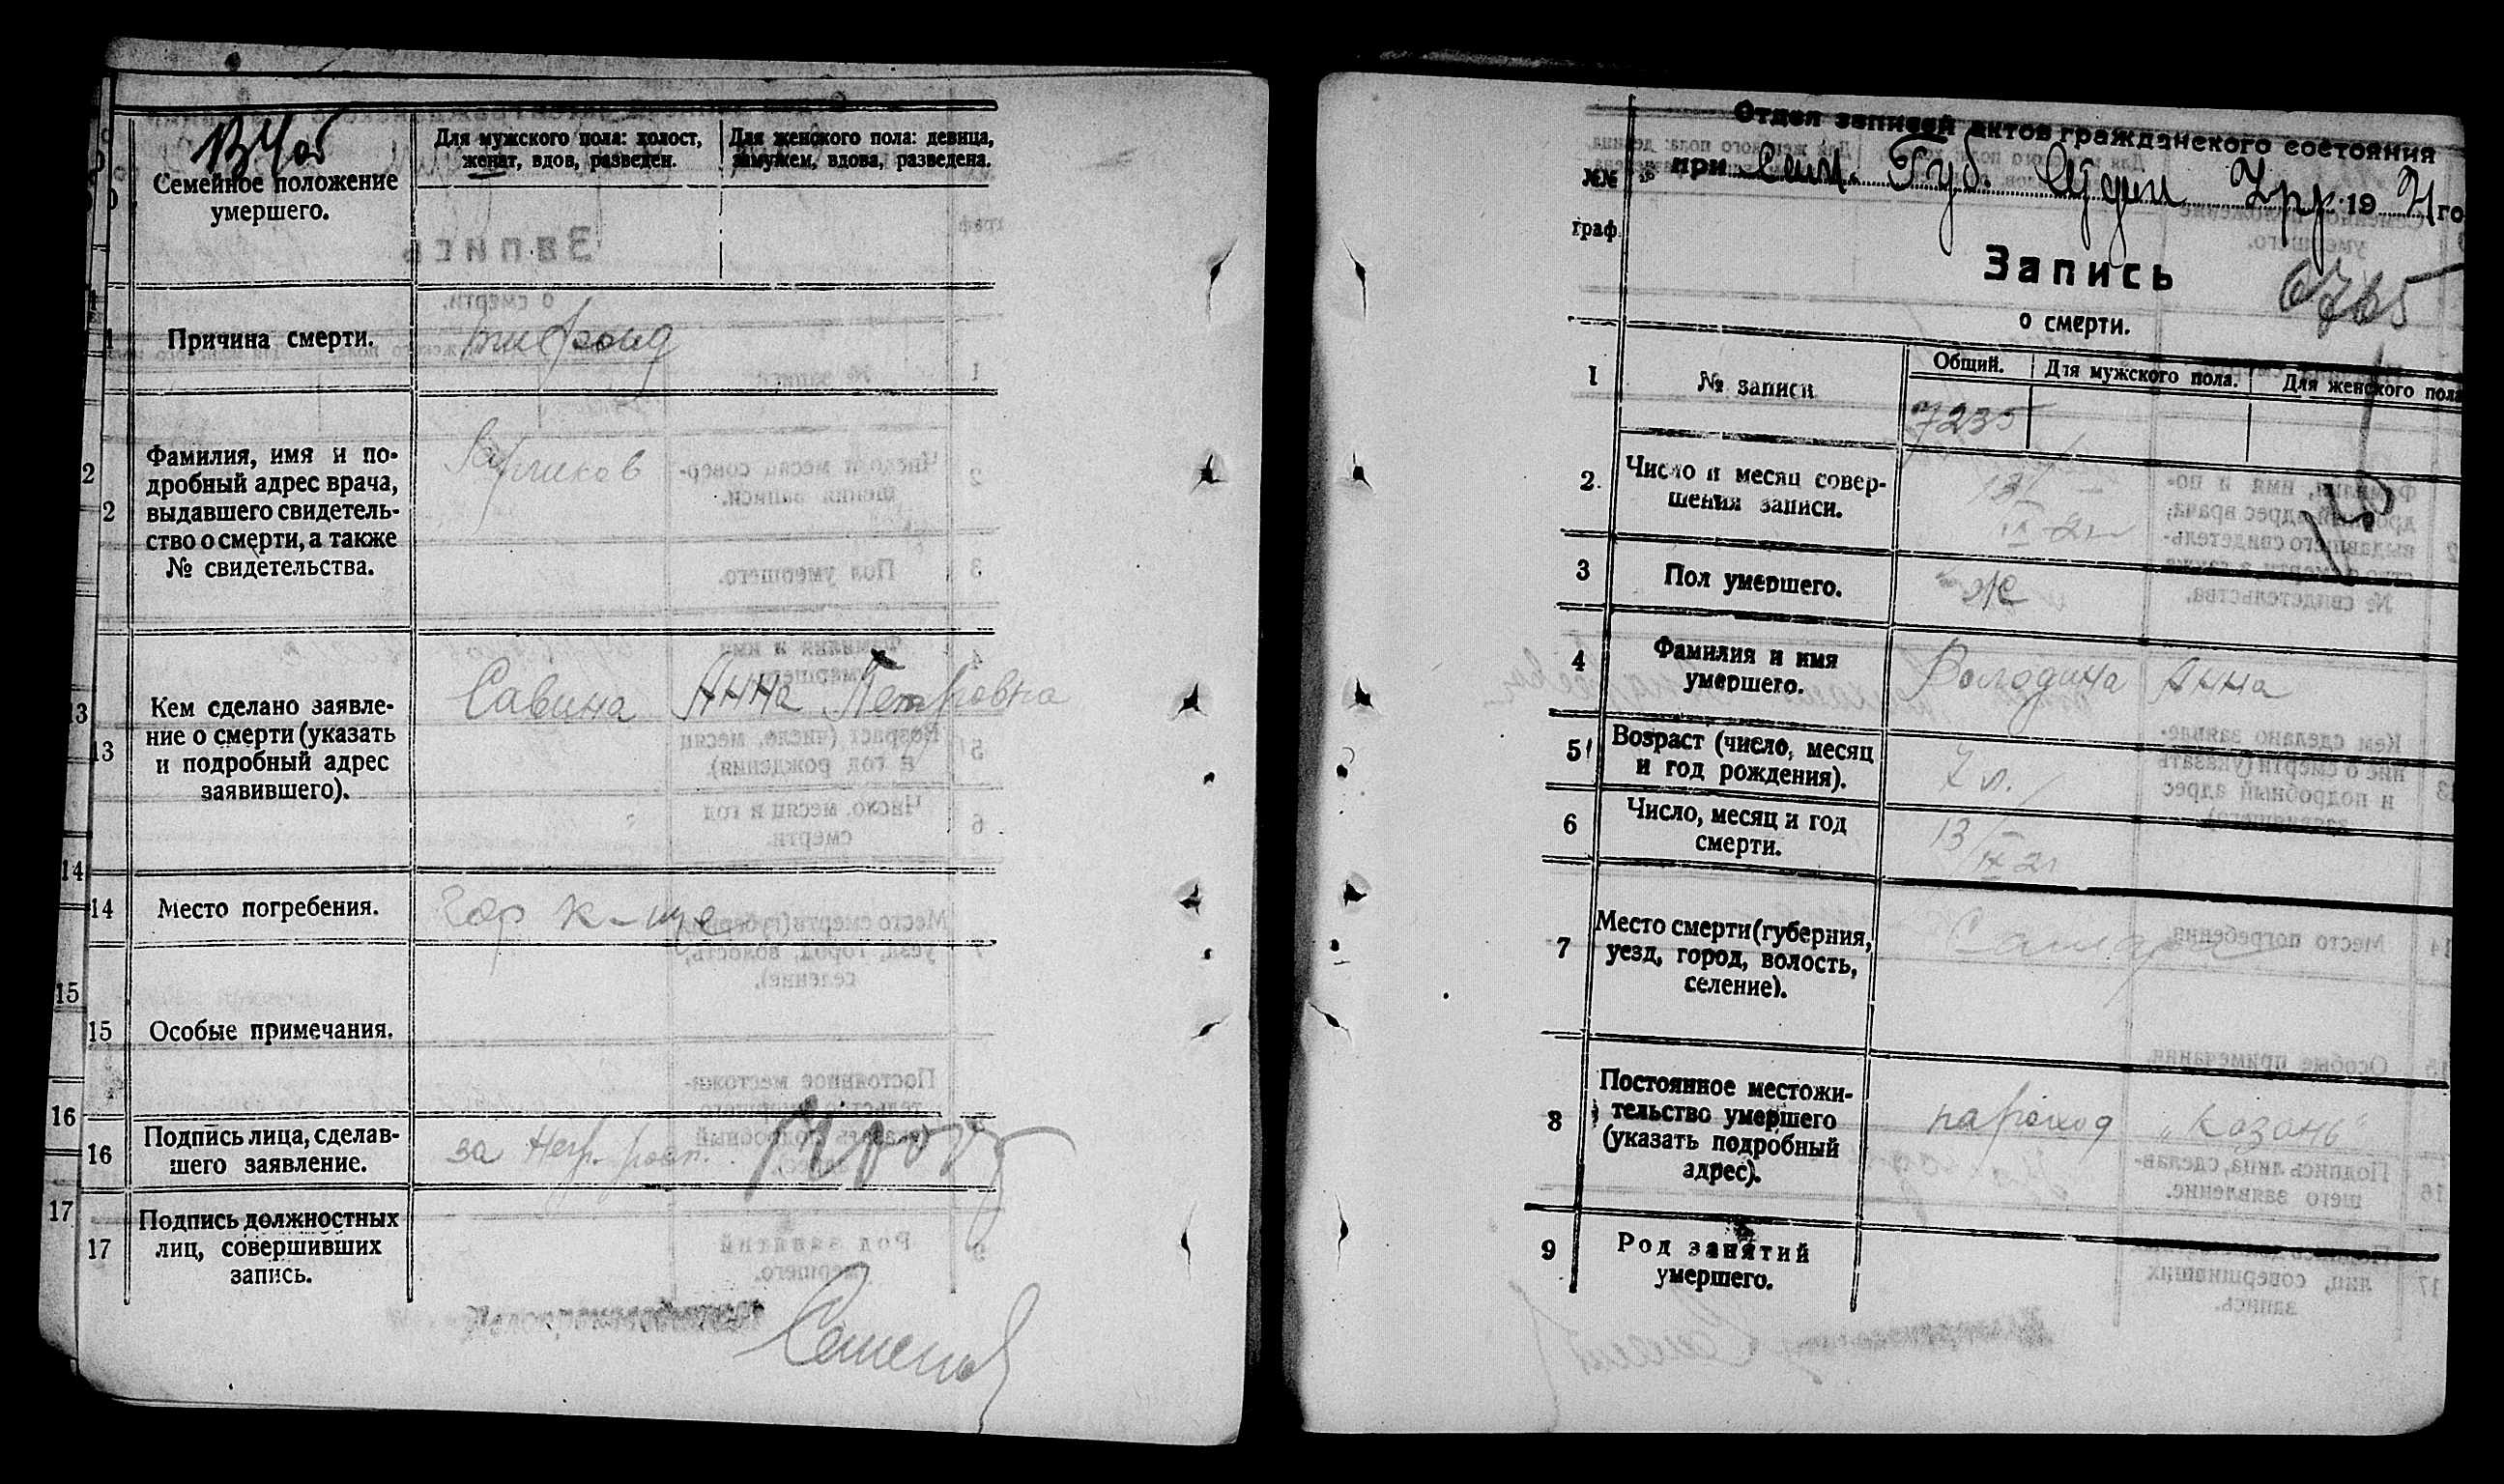 Семейное положение
умершего.
Для мужского пола: холост,
женат, вдов, разведен.
Для женского пола: девица,
замужем, вдова, разведена.
Причина смерти.
тифоид
2
Фамилия, имя и по-
дробный адрес врача,
выдавшего свидетель-
ство о смерти, а также
№ свидетельства.
13
Кем сделано заявле-
ние о смерти (указать
и подробный адрес
заявившего).
Савина Анна Петровна
14
Место погребения.
Гор к-ще
15
Особые примечания.
16
Подпись лица, сделав-
шего заявление.
за негр.
17
Подпись должностных
лиц, совершивших
запись.
Отдел записей актов гражданского состояния
при Сам. Губ. 1921 го
№№
граф.
Запись
о смерти.
1
№ записи
Общий.
Для мужского пола.
Для женского пола
7235
2.
Число и месяц совер-
шения записи.
13/
IX 21
3
Пол умершего.
ж
4
Фамилия и имя
умершего.
Володина Анна
5
Возраст (число, месяц
и год рождения).
7 л.
6
Число, месяц и год
смерти.
13/IX 21
7
Место смерти (губерния,
уезд, город, волость,
селение).
Самара
8
Постоянное местожи-
тельство умершего
(указать подробный
адрес).
пароход „Казань“
9
Род занятий
умершего.